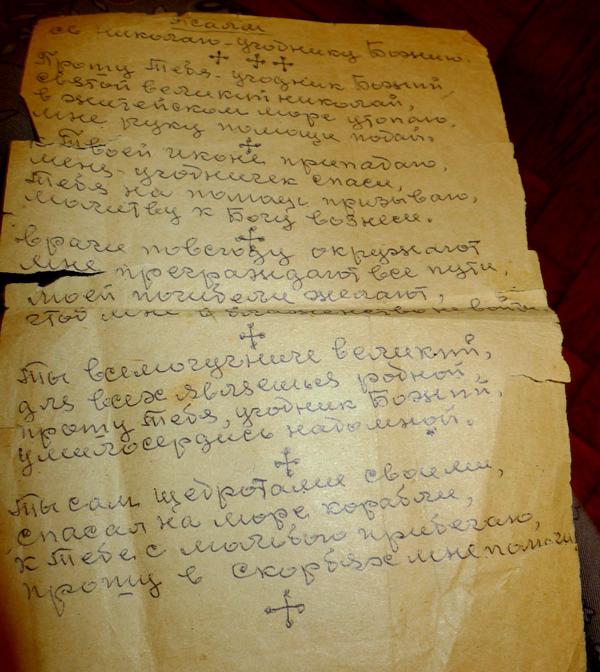 псалом
св николаю-угоднику Божию.
Прошу Тебя-угодник Божий
святой великий николай,
в житейском море утопаю,
мне руку помощи подай.
к Твоей иконе припадаю,
меня-угодничек спаси,
Тебя на помощь призываю,
молитву к Богу вознеси.
врачи повсюду окружают
мне преграждают все пути,
моей погибели желают,
чтоб мне в блаженство не войти
Ты всемогучниче великий,
для всех являешься родной,
прошу Тебя, угодник Божий,
умилосердись надомной.
Ты сам щедротами своими,
спасал на море корабли,
к Тебе с мольбою прибегаю,
прошу в скорбях мне помоги.